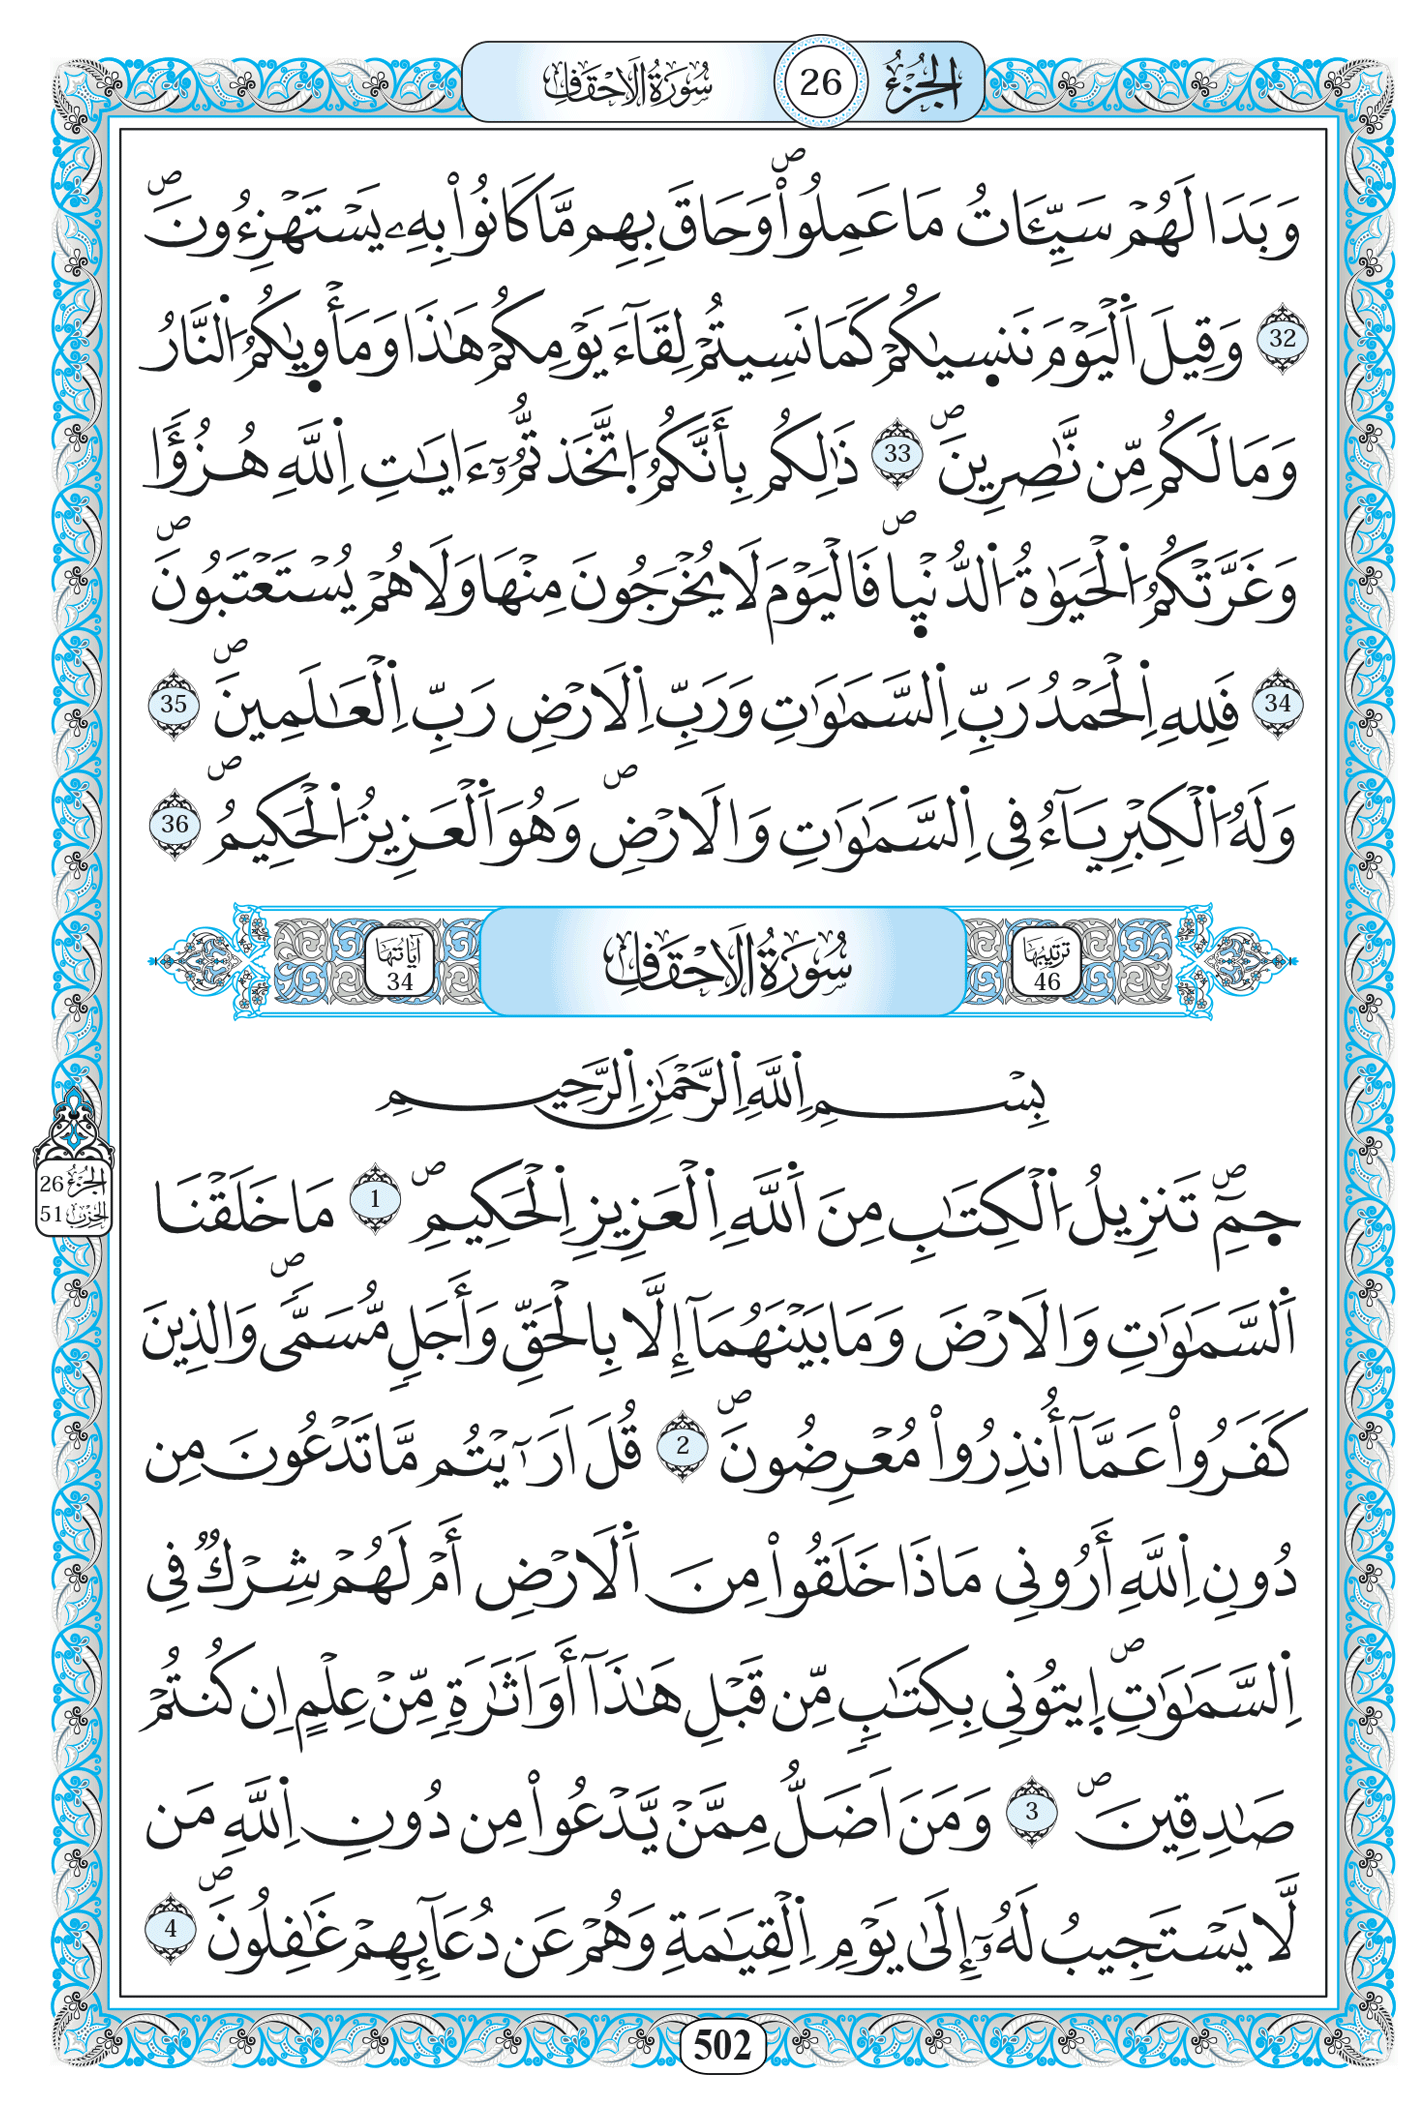 الجزء 26 سورة الاحقاف
وَبَدَا لَهُمْ سَيِّـَٔاتُ مَا عَمِلُوا۟ۖ وَحَاقَ بِهِم مَّا كَانُوا۟ بِهِۦ يَسْتَهْزِءُونَۖ
32 وَقِيلَ اَ۬لْيَوْمَ نَنس۪يٰكُمْ كَمَا نَسِيتُمْ لِقَآءَ يَوْمِكُمْ هَٰذَا وَمَأْو۪يٰكُمُ اُ۬لنَّارُ
وَمَا لَكُم مِّن نَّٰصِرِينَۖ 33 ذَٰلِكُم بِأَنَّكُمُ اُ۪تَّخَذتُّمُۥٓ ءَايَٰتِ اِ۬للَّهِ هُزُؤٗا
وَغَرَّتْكُمُ اُ۬لْحَيَوٰةُ اُ۬لدُّنْي۪اۖ فَالْيَوْمَ لَا يُخْرَجُونَ مِنْهَا وَلَا هُمْ يُسْتَعْتَبُونَۖ
34 فَلِلهِ اِ۬لْحَمْدُ رَبِّ اِ۬لسَّمَٰوَٰتِ وَرَبِّ اِ۬لَارْضِ رَبِّ اِ۬لْعَٰلَمِينَۖ 35
وَلَهُ اُ۬لْكِبْرِيَآءُ فِى اِ۬لسَّمَٰوَٰتِ وَالَارْضِۖ وَهُوَ اَ۬لْعَزِيزُ اُ۬لْحَكِيمُۖ 36
ترتيبها 46 سورة الاحقاف آياتها 34
بِسْمِ اِ۬للَّهِ اِ۬لرَّحْمَٰنِ اِ۬لرَّحِيمِ
ح۪مِٓۖ تَنزِيلُ اُ۬لْكِتَٰبِ مِنَ اَ۬للَّهِ اِ۬لْعَزِيزِ اِ۬لْحَكِيمِۖ 1 مَا خَلَقْنَا
الجزء 26
الحزب 51
اَ۬لسَّمَٰوَٰتِ وَالَارْضَ وَمَا بَيْنَهُمَآ إِلَّا بِالْحَقِّ وَأَجَلٖ مُّسَمّٗىۖ وَالذِينَ
كَفَرُوا۟ عَمَّآ أُنذِرُوا۟ مُعْرِضُونَۖ 2 قُلَ اَرَٰٓيْتُم مَّا تَدْعُونَ مِن
دُونِ اِ۬للَّهِ أَرُونِى مَاذَا خَلَقُوا۟ مِنَ اَ۬لَارْضِ أَمْ لَهُمْ شِرْكٞ فِى
اِ۬لسَّمَٰوَٰتِۖ اِ۪يتُونِى بِكِتَٰبٖ مِّن قَبْلِ هَٰذَآ أَوَ اَثَٰرَةٖ مِّنْ عِلْمٍ اِن كُنتُمْ
صَٰدِقِينَۖ 3 وَمَنَ اَضَلُّ مِمَّنْ يَّدْعُوا۟ مِن دُونِ اِ۬للَّهِ مَن
لَّا يَسْتَجِيبُ لَهُۥٓ إِلَىٰ يَوْمِ اِ۬لْقِيَٰمَةِ وَهُمْ عَن دُعَآئِهِمْ غَٰفِلُونَۖ 4
502